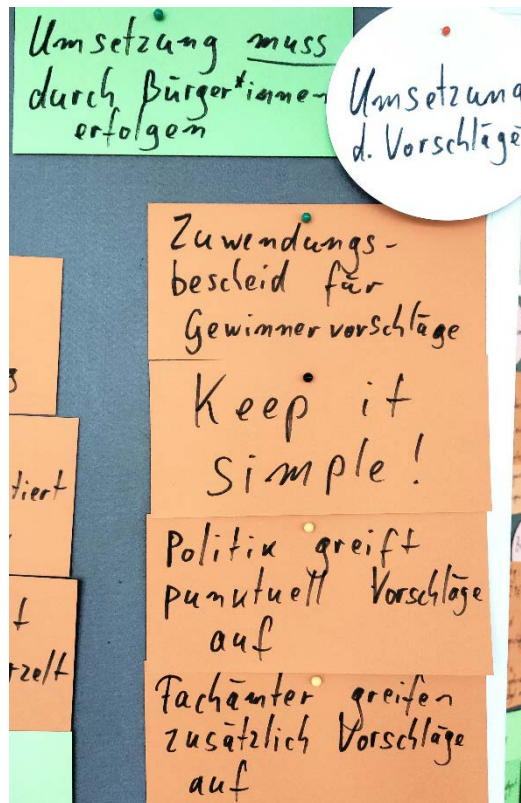 Umsetzung muss
durch Bürger*innen
erfolgen
Umsetzung
d. Vorschläge
Zuwendungs-
bescheid für
Gewinnervorschläge
Keep it
simple!
Politik greift
punktuell Vorschläge
auf
Fachämter greifen
zusätzlich Vorschläge
auf
tiert
t
rzelt